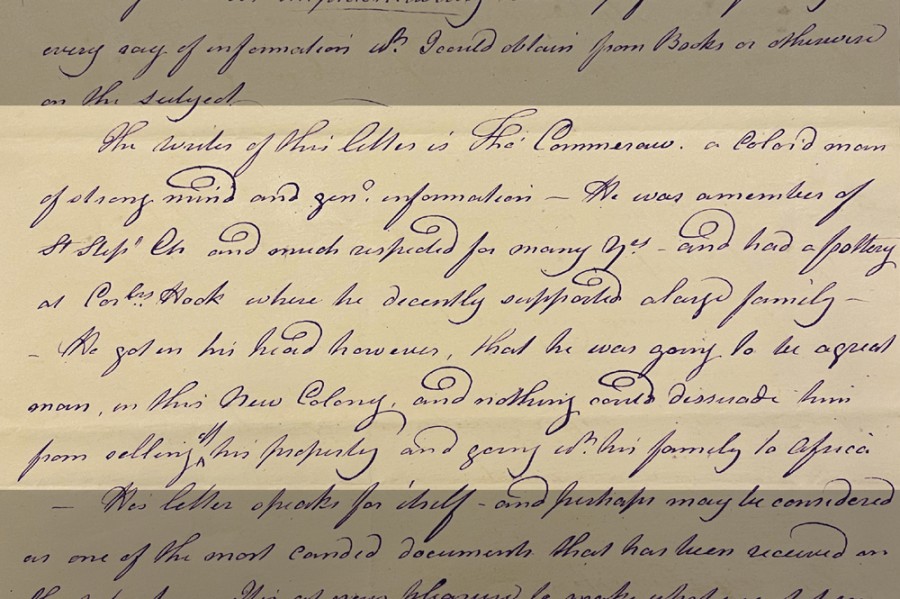 every ray of information wh I could obtain from Books or otherwise
on the subject
The writer of this letter is Tho' Commeraw. a Colord man
of strong mind and gen° information – He was a member of
St Step's Ch and much respected for many Yrs – and had a pottery
at Corlrs Hook where he decently supported a large family –
– He got in his head however, that he was going to be a great
man, in this New Colony, and nothing could dissuade him
from selling off his property and going wh his family to Africa
– His letter speaks for itself – and perhaps may be considered
as one of the most candid documents that has been received on